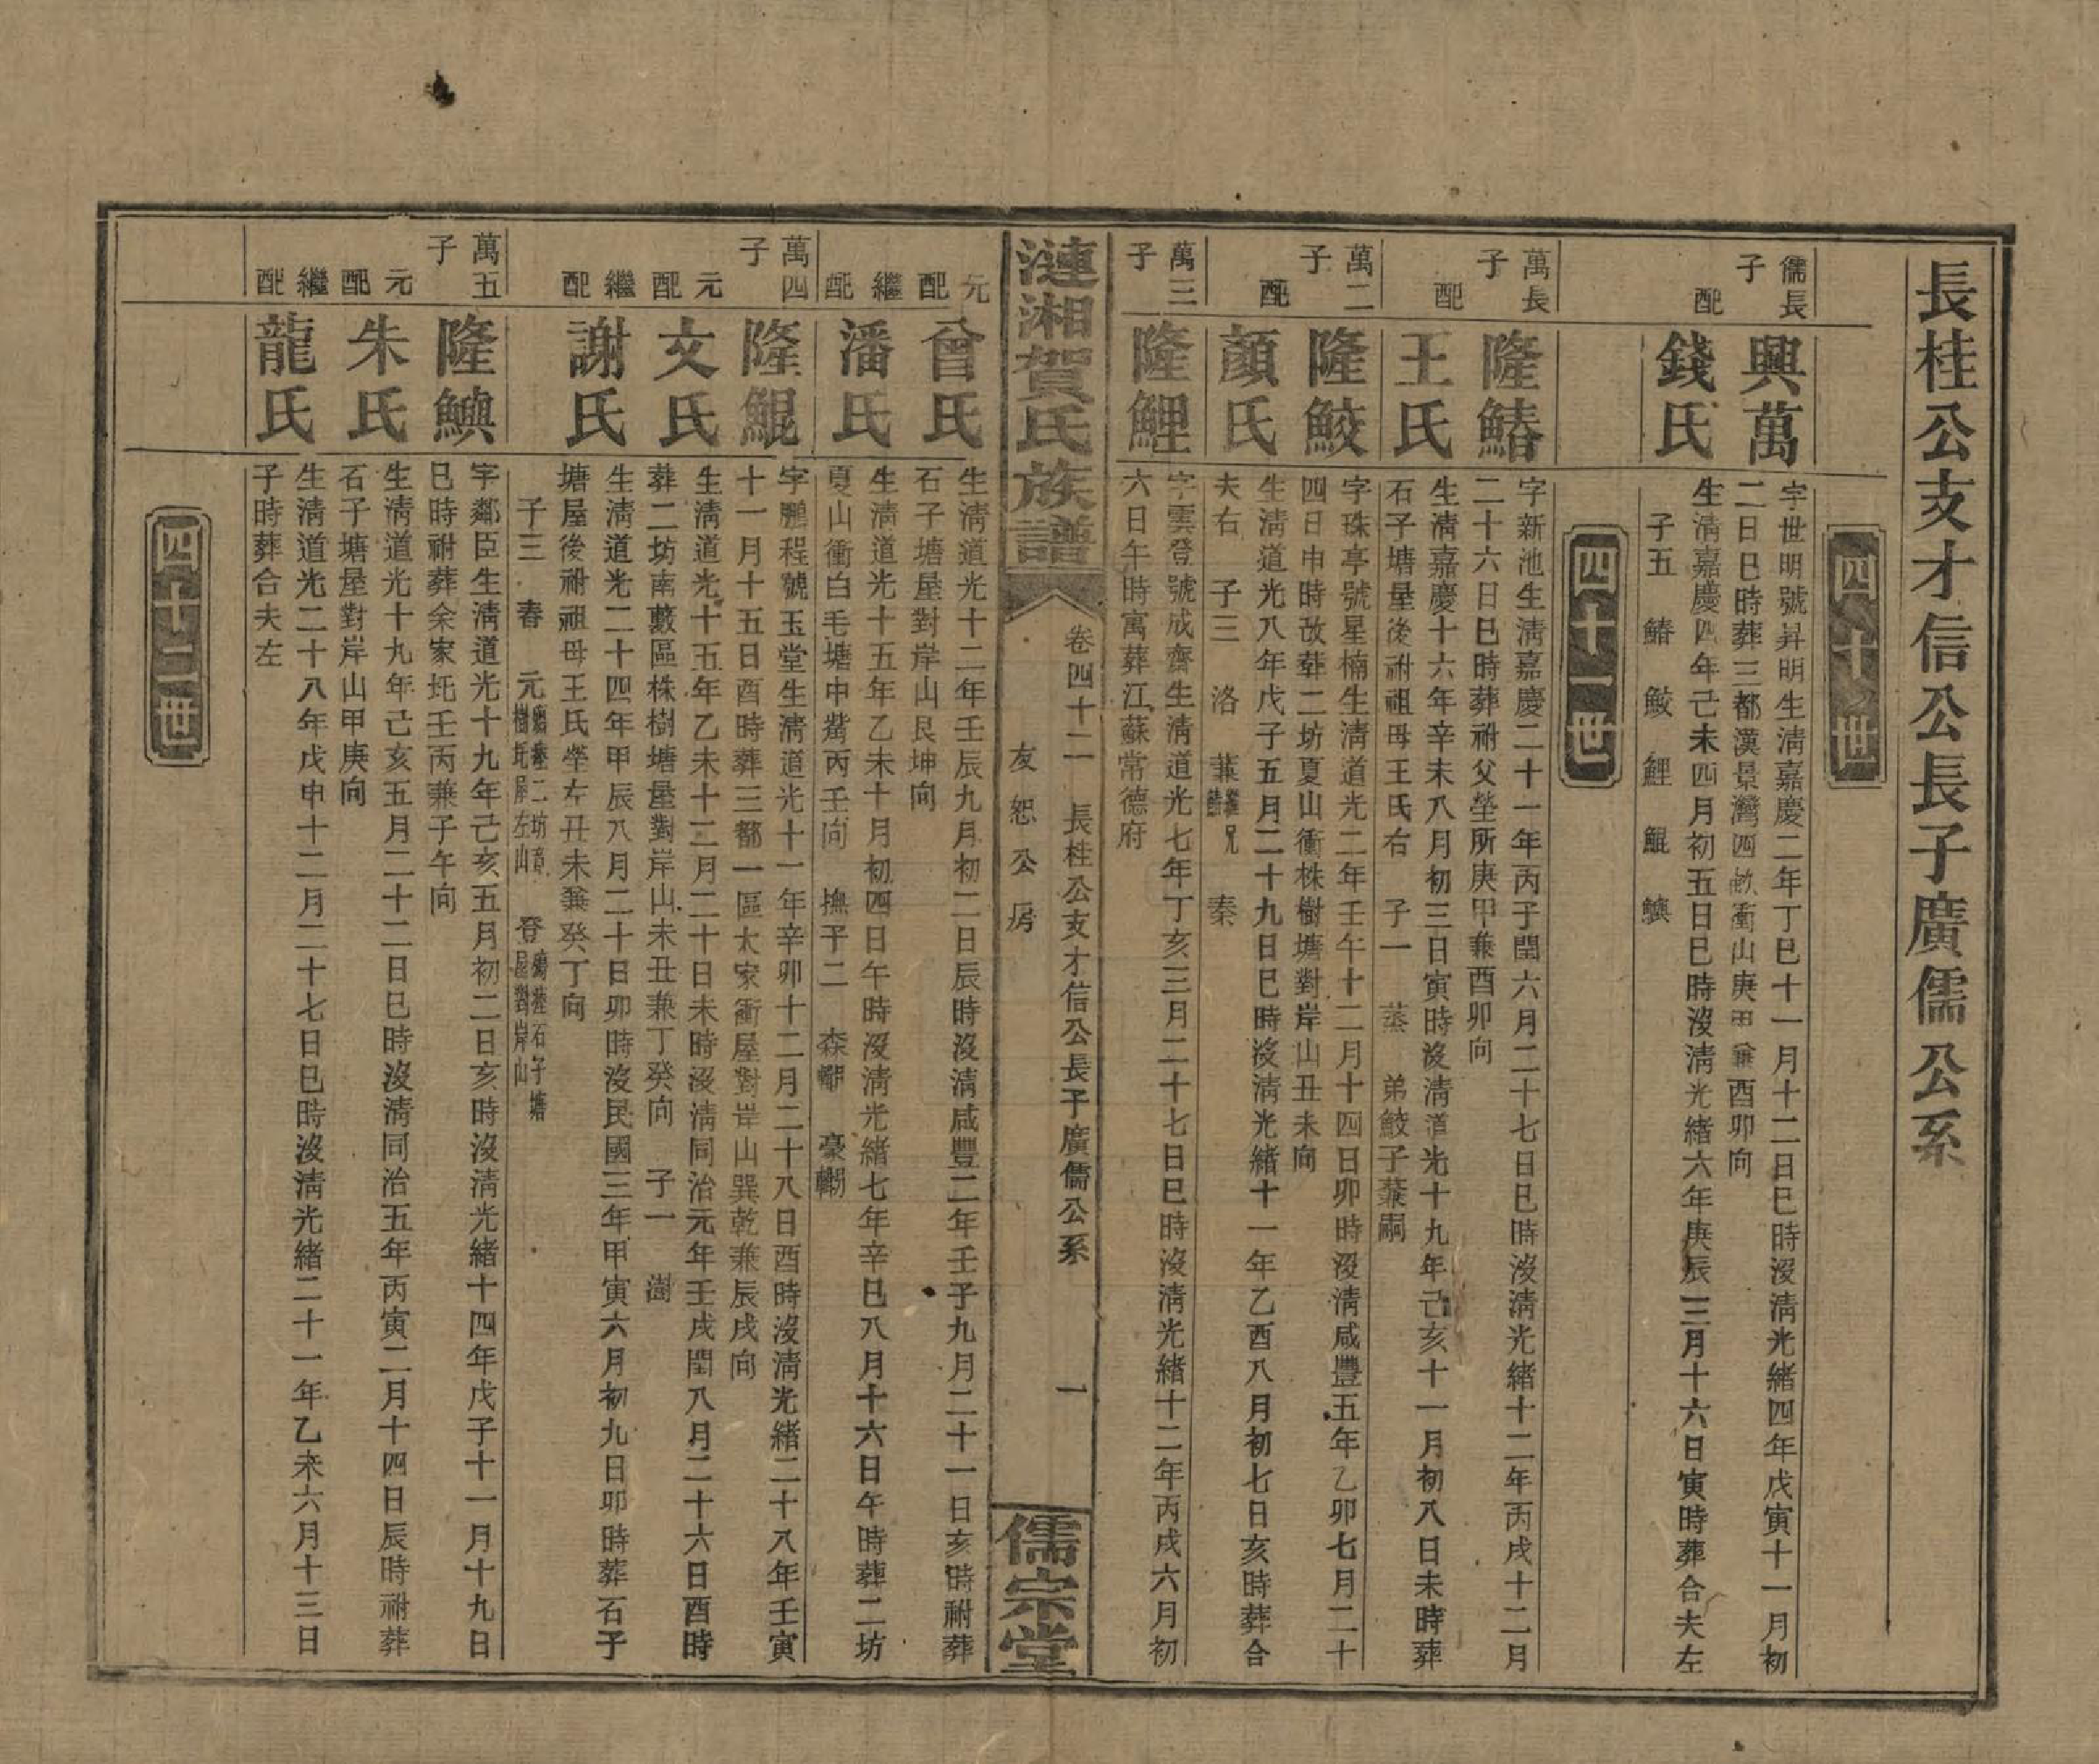 長桂公支才信公長子廣儒公系
四十世
儒長子
興萬
字世明號昇明生淸嘉慶二年丁巳十一月十二日巳時沒淸光緒四年戊寅十一月初
二日巳時葬三都漢景灣四畝衝山庚甲兼酉卯向
配
錢氏
生淸嘉慶四年己未四月初五日巳時沒淸光緒六年庚辰三月十六日寅時葬合夫左
子五 鰆 鮫 鯉 鯤 鱮
四十一世
萬長子
隆鰆
字新池生淸嘉慶二十一年丙子閏六月二十七日巳時沒淸光緒十二年丙戌十二月
二十六日巳時葬祔父塋所庚甲兼酉卯向
配
王氏
生淸嘉慶十六年辛未八月初三日寅時沒淸道光十九年己亥十一月初八日未時葬
石子塘屋後祔祖母王氏右 子一 蒸 弟鮫子葉嗣
萬二子
隆鮫
字珠亭號星楠生淸道光二年壬午十二月十四日卯時沒淸咸豐五年乙卯七月二十
四日申時改葬二坊夏山衝株樹塘對岸山丑未向
配
顏氏
生淸道光八年戊子五月二十九日巳時沒淸光緒十一年乙酉八月初七日亥時葬合
夫右 子三 洛 葉 秦
萬三子
隆鯉
字雲登號成齋生淸道光七年丁亥三月二十七日巳時沒淸光緒十二年丙戌六月初
六日午時寓葬江蘇常德府
漣湘賀氏族譜
卷四十二 長桂公支才信公長子廣儒公系 一
友恕公房
儒宗堂
元配
曾氏
生淸道光十二年壬辰九月初二日辰時沒淸咸豐二年壬子九月二十一日亥時祔葬
石子塘屋對岸山艮坤向
繼配
潘氏
生淸道光十五年乙未十月初四日午時沒淸光緒七年辛巳八月十六日午時葬二坊
夏山衝白毛塘中嘴丙壬向 撫子二 森 豪
萬四子
隆鯤
字鵬程號玉堂生淸道光十一年辛卯十二月二十八日酉時沒淸光緒二十八年壬寅
十一月十五日酉時葬三都一區太家衝屋對岸山巽乾兼辰戌向
元配
文氏
生淸道光十五年乙未十二月二十日未時沒淸同治元年壬戌閏八月二十六日酉時
葬二坊南藪區株樹塘屋對岸山未丑兼丁癸向 子一 澍
繼配
謝氏
生淸道光二十四年甲辰八月二十日卯時沒民國三年甲寅六月初九日卯時葬石子
塘屋後祔祖母王氏塋左丑未兼癸丁向
子三 春 元 殤葬二坊章樹坵屋左山 登 殤葬石子塘屋對岸山
萬五子
隆鱮
字鄰臣生淸道光十九年己亥五月初二日亥時沒淸光緒十四年戊子十一月十九日
巳時祔葬余家坵壬丙兼子午向
元配
朱氏
生淸道光十九年己亥五月二十二日巳時沒淸同治五年丙寅二月十四日辰時祔葬
石子塘屋對岸山甲庚向
繼配
龍氏
生淸道光二十八年戊申十二月二十七日巳時沒淸光緒二十一年乙未六月十三日
子時葬合夫左
四十二世